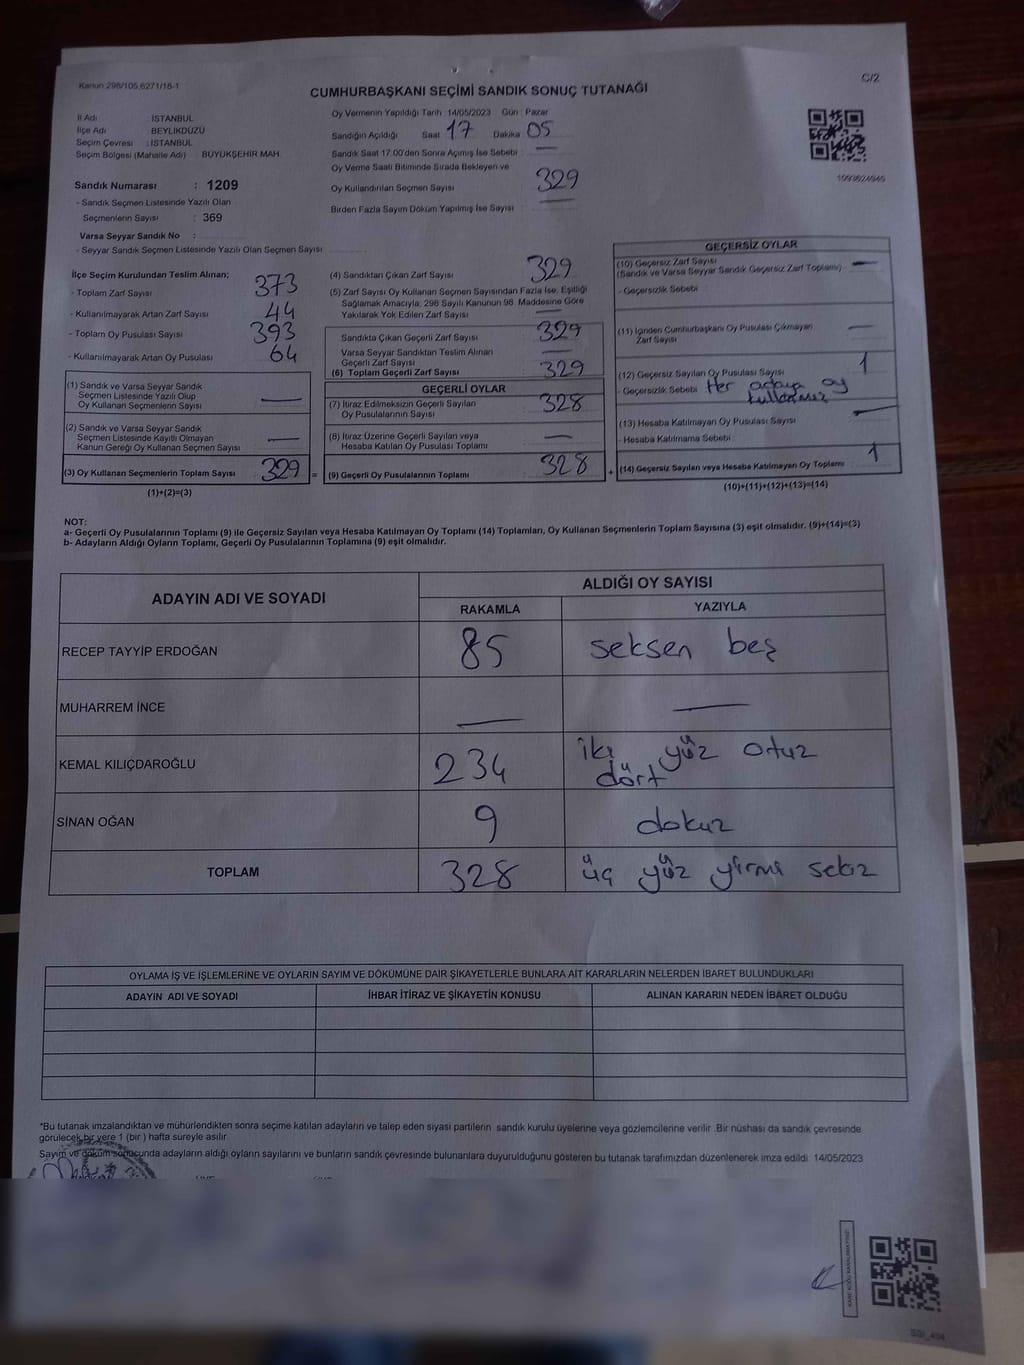 Kanun:298/105,6271/18-1
C/2
CUMHURBAŞKANI SEÇİMİ SANDIK SONUÇ TUTANAĞI
İl Adı : İSTANBUL
İlçe Adı : BEYLİKDÜZÜ
Seçim Çevresi : İSTANBUL
Seçim Bölgesi (Mahalle Adı) : BÜYÜKŞEHİR MAH.
Sandık Numarası : 1209
- Sandık Seçmen Listesinde Yazılı Olan
Seçmenlerin Sayısı : 369
Varsa Seyyar Sandık No :
- Seyyar Sandık Seçmen Listesinde Yazılı Olan Seçmen Sayısı
Oy Vermenin Yapıldığı Tarih : 14/05/2023 Gün : Pazar
Sandığın Açıldığı Saat 17 Dakika 05
Sandık Saat 17:00'den Sonra Açımış İse Sebebi : —
Oy Verme Saati Bitiminde Sırada Bekleyen ve
Oy Kullandırılan Seçmen Sayısı 329
Birden Fazla Sayım Döküm Yapılmış İse Sayısı : —
1093624945
İlçe Seçim Kurulundan Teslim Alınan;
- Toplam Zarf Sayısı 373
- Kullanılmayarak Artan Zarf Sayısı 44
- Toplam Oy Pusulası Sayısı 393
- Kullanılmayarak Artan Oy Pusulası 64
(1) Sandık ve Varsa Seyyar Sandık
Seçmen Listesinde Yazılı Olup
Oy Kullanan Seçmenlerin Sayısı —
(2) Sandık ve Varsa Seyyar Sandık
Seçmen Listesinde Kayıtlı Olmayan
Kanun Gereği Oy Kullanan Seçmen Sayısı —
(3) Oy Kullanan Seçmenlerin Toplam Sayısı 329 =
(1)+(2)=(3)
(4) Sandıktan Çıkan Zarf Sayısı 329
(5) Zarf Sayısı Oy Kullanan Seçmen Sayısından Fazla İse, Eşitliği
Sağlamak Amacıyla, 298 Sayılı Kanunun 98. Maddesine Göre
Yakılarak Yok Edilen Zarf Sayısı —
Sandıkta Çıkan Geçerli Zarf Sayısı 329
Varsa Seyyar Sandıktan Teslim Alınan
Geçerli Zarf Sayısı —
(6) Toplam Geçerli Zarf Sayısı 329
GEÇERLİ OYLAR
(7) İtiraz Edilmeksizin Geçerli Sayılan
Oy Pusulalarının Sayısı 328
(8) İtiraz Üzerine Geçerli Sayılan veya
Hesaba Katılan Oy Pusulası Toplamı —
(9) Geçerli Oy Pusulalarının Toplamı 328 +
GEÇERSİZ OYLAR
(10) Geçersiz Zarf Sayısı —
(Sandık ve Varsa Seyyar Sandık Geçersiz Zarf Toplamı)
- Geçersizlik Sebebi
(11) İçinden Cumhurbaşkanı Oy Pusulası Çıkmayan
Zarf Sayısı —
(12) Geçersiz Sayılan Oy Pusulası Sayısı 1
- Geçersizlik Sebebi Her adaya oy
kullanmış
(13) Hesaba Katılmayan Oy Pusulası Sayısı —
- Hesaba Katılmama Sebebi
(14) Geçersiz Sayılan veya Hesaba Katılmayan Oy Toplamı 1
(10)+(11)+(12)+(13)=(14)
NOT:
a- Geçerli Oy Pusulalarının Toplamı (9) ile Geçersiz Sayılan veya Hesaba Katılmayan Oy Toplamı (14) Toplamları, Oy Kullanan Seçmenlerin Toplam Sayısına (3) eşit olmalıdır. (9)+(14)=(3)
b- Adayların Aldığı Oyların Toplamı, Geçerli Oy Pusulalarının Toplamına (9) eşit olmalıdır.
ADAYIN ADI VE SOYADI ALDIĞI OY SAYISI
RAKAMLA YAZIYLA
RECEP TAYYİP ERDOĞAN 85 seksen beş
MUHARREM İNCE — —
KEMAL KILIÇDAROĞLU 234 iki yüz otuz
dört
SİNAN OĞAN 9 dokuz
TOPLAM 328 üç yüz yirmi sekiz
OYLAMA İŞ VE İŞLEMLERİNE VE OYLARIN SAYIM VE DÖKÜMÜNE DAİR ŞİKAYETLERLE BUNLARA AİT KARARLARIN NELERDEN İBARET BULUNDUKLARI
ADAYIN ADI VE SOYADI İHBAR İTİRAZ VE ŞİKAYETİN KONUSU ALINAN KARARIN NEDEN İBARET OLDUĞU
*Bu tutanak imzalandıktan ve mühürlendikten sonra seçime katılan adayların ve talep eden siyasi partilerin sandık kurulu üyelerine veya gözlemcilerine verilir .Bir nüshası da sandık çevresinde
görülecek bir yere 1 (bir ) hafta süreyle asılır
Sayım ve döküm sonucunda adayların aldığı oyların sayılarını ve bunların sandık çevresinde bulunanlara duyurulduğunu gösteren bu tutanak tarafımızdan düzenlenerek imza edildi. 14/05/2023